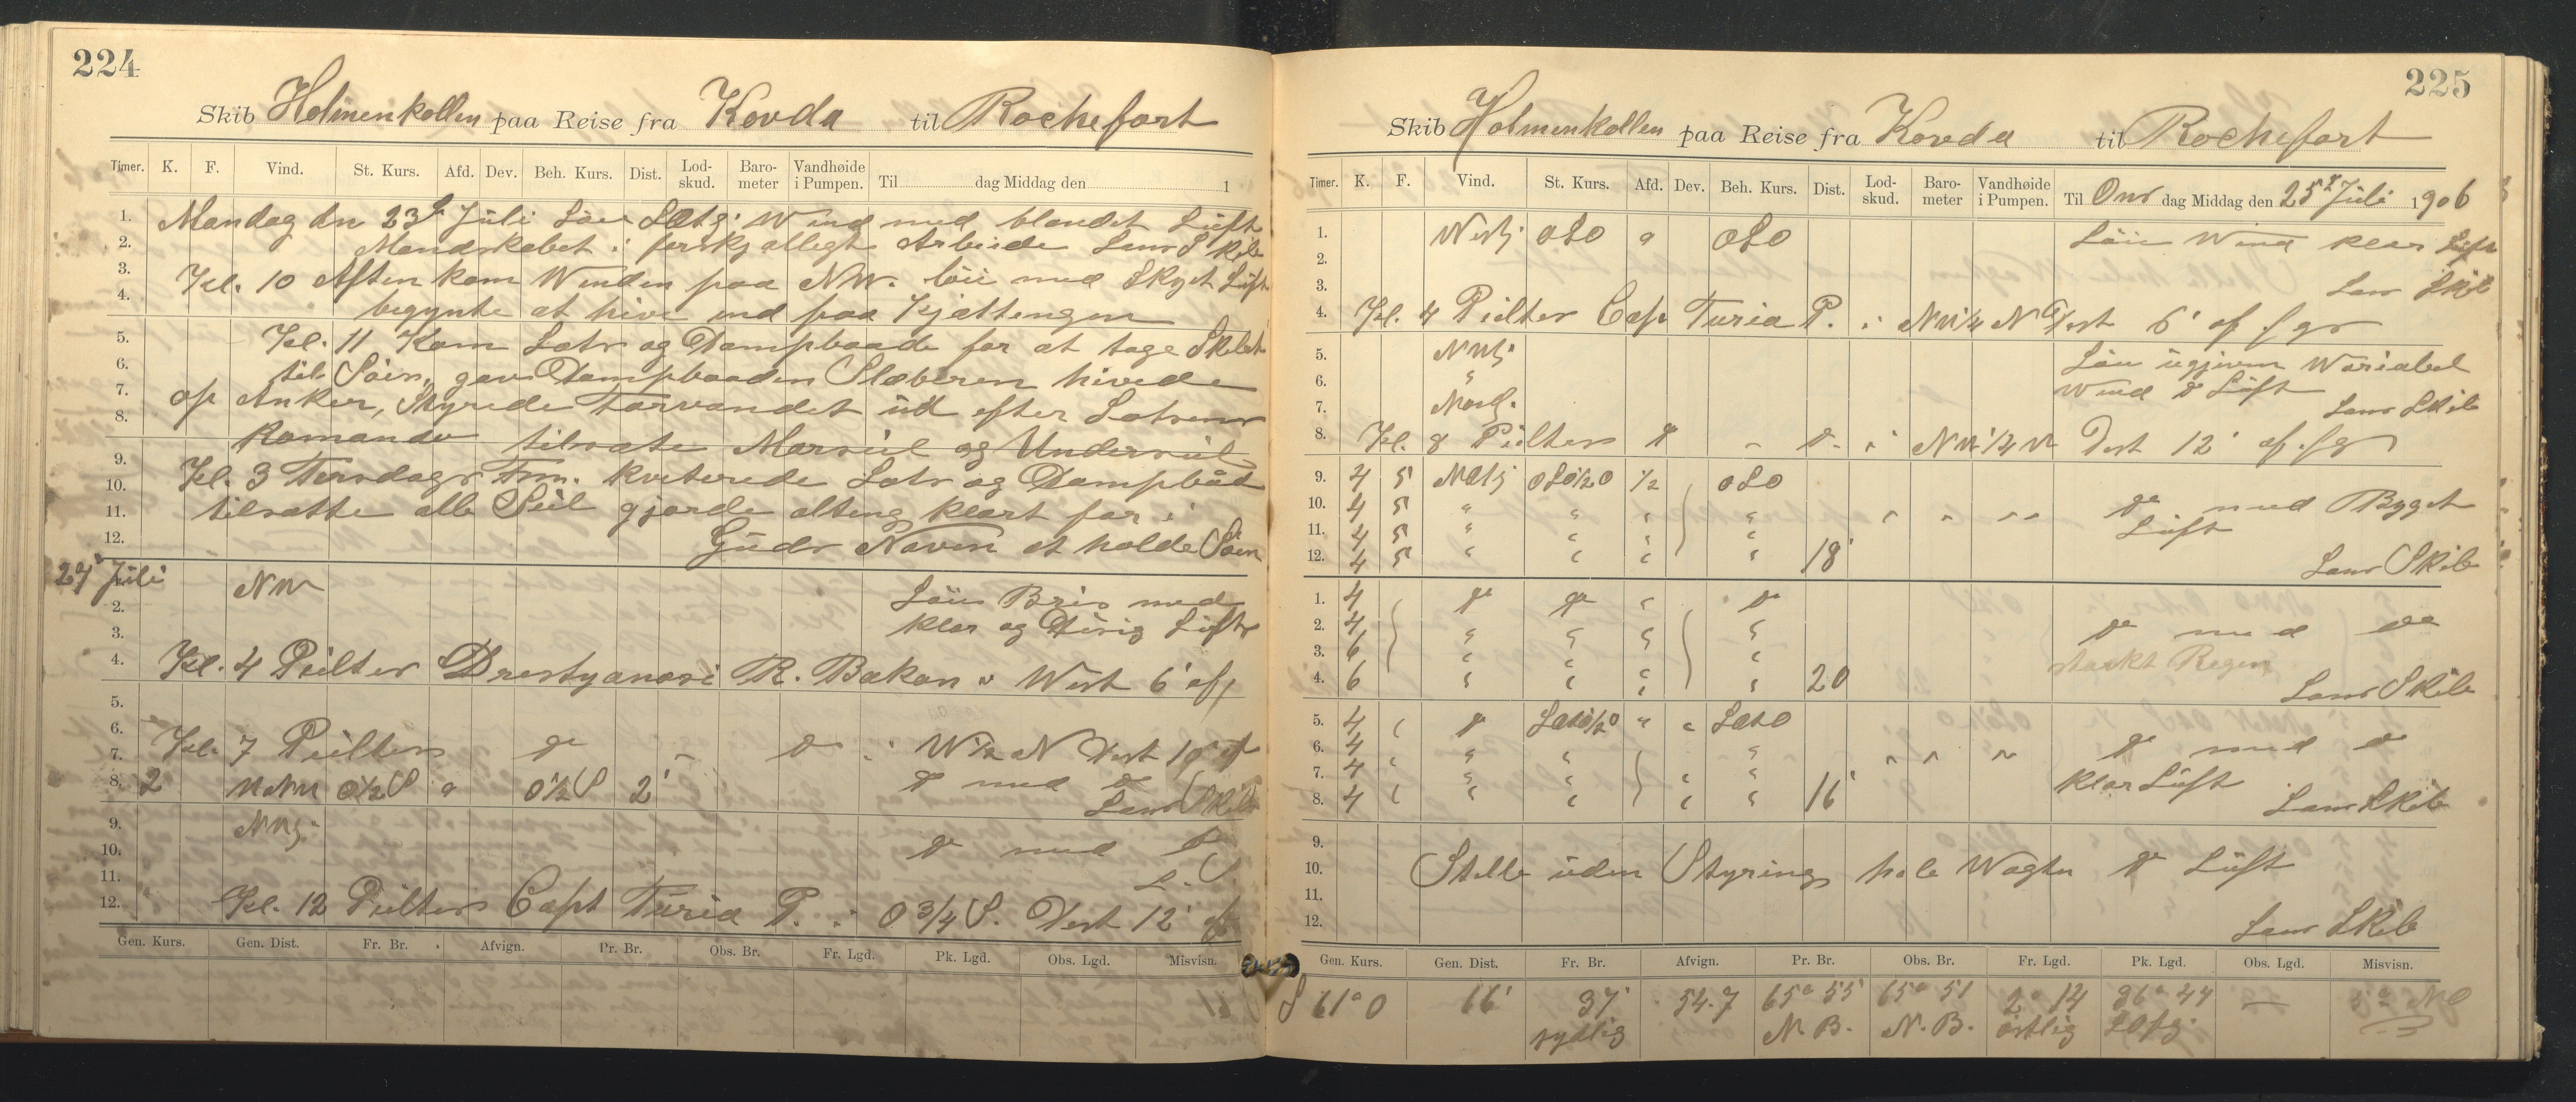 224
Skib Holmenkollen paa Reise fra Kovda til Rochefort
Timer. K. F. Vind. St. Kurs. Afd. Dev. Beh. Kurs. Dist. Lod-skud. Baro-meter Vandhøide i Pumpen. Til dag Middag den 1
1. Mandag dn 23d Juli Løi Wind med blandet Luft
2. Mandskabet i forskjælligt Arbeide Lens Skib
3. Kl. 10 Aften kom Winden paa NW. løi med Skyet Luft
4. begynte at hive ind paa Kjættengen
5. Kl. 11 Kom Lots og Dampbaade for at tage Skibet
6. til Søis, gav Dampbaaden Slæberen hivede
7. op Anker, Styrede Farvandet ud efter Lotsens
8. Komando tilsatte Mersseil og Underseil
9. Kl. 3 Tirsdags Fm. kviterede Lots og Dampbåd
10.
11. tilsatte alle Seil gjorde alting klart for i
12. Guds Navn at holde Søen
24d Juli NW Løi Bris med
2. klar og Disig Luft
3.
4. Kl. 4 Peilter R. Bakan i West 6' aff
5.
6.
7. Kl. 7 Peiltes do - do i W½N Dist 10' af
8. 2 NNW O½S 0 O½S 2' do med do
Lens Skib
9. NWlj. do med do
10.
11. L. S.
12. Kl. 12 Peiltes Capt Turia P. i O 3/4 S. Dist 12' af
Gen. Kurs. Gen. Dist. Fr. Br. Afvign. Pr. Br. Obs. Br. Fr. Lgd. Pk. Lgd. Obs. Lgd. Misvisn.
225
Skib Holmenkollen paa Reise fra Kovda til Rochefort
Timer. K. F. Vind. St. Kurs. Afd. Dev. Beh. Kurs. Dist. Lod-skud. Baro-meter Vandhøide i Pumpen. Til Ons dag Middag den 25d Juli 1906
1. Westlj OSO 0 OSO Løi Wind klar Luft
2.
3. Lens Skib
4. Kl. 4 Peiltes Cap Turia P. i NW¼N Dist 6' af .fgs
5. NWlj. Løi ugjevn Wariabel
6. " Wind do Luft
7. Nordl. Lens Skib
8. Kl. 8 Peiltes do - do i NW¼W Dist 12' af .fgs
9. 4 5 OSO½O ½ OSO
10. 4 5 " " " " " " " do med Bygget
11. 4 5 " " " " Luft
12. 4 5 " " " " 18' Lens Skib
1. 4 do do " do
2. 4 " " " " do med do
3. 6 " " " stærkt Regen
4. 6 " " " " 20 Lens Skib
5. 4 " do " "
6. 4 " " " " " " " do med do
7. 4 " " " " klar Luft
8. 4 " " " " " 16' Lens Skib
9.
10. Stille uden Styring hele Wagten do Luft
11.
12. Lens Skib
Gen. Kurs. Gen. Dist. Fr. Br. Afvign. Pr. Br. Obs. Br. Fr. Lgd. Pk. Lgd. Obs. Lgd. Misvisn.
S 61° O 66' 37' 54.7 65° 55' 65° 51 2° 14 36° 44 —
sydlig N. B. N. B. østlig